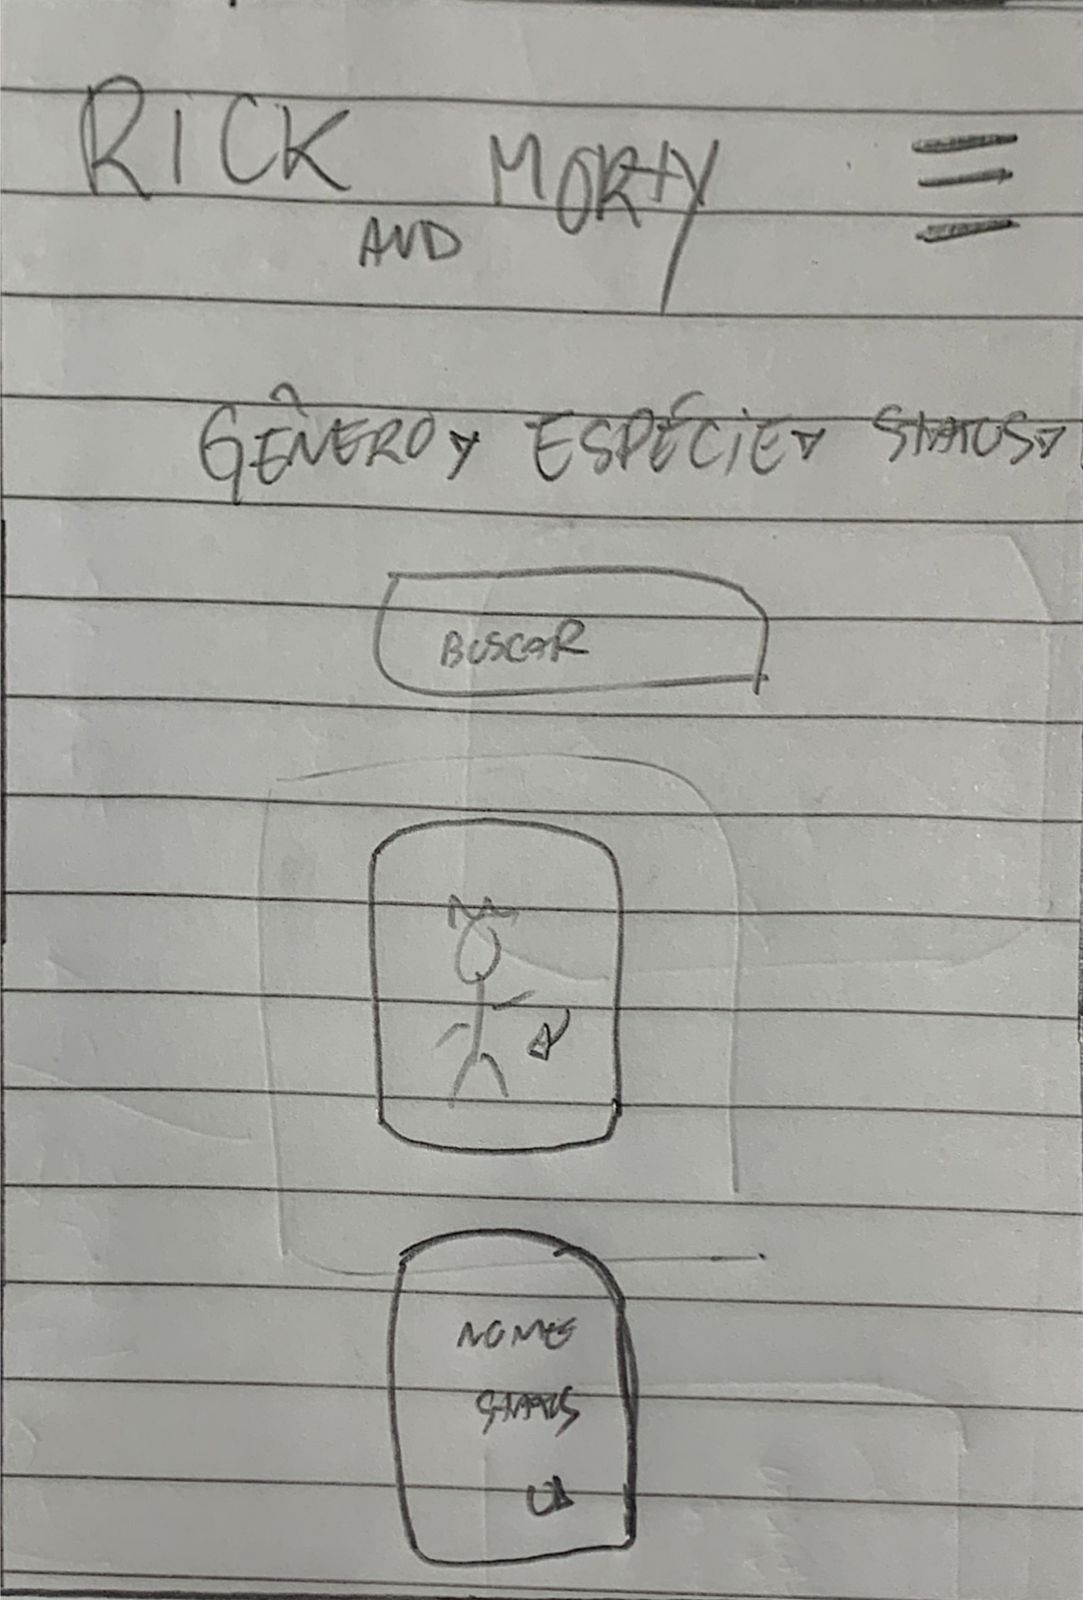 RICK MORTY
AND
GÊNERO ESPÉCIE STATUS
BUSCAR
NOME
STATUS